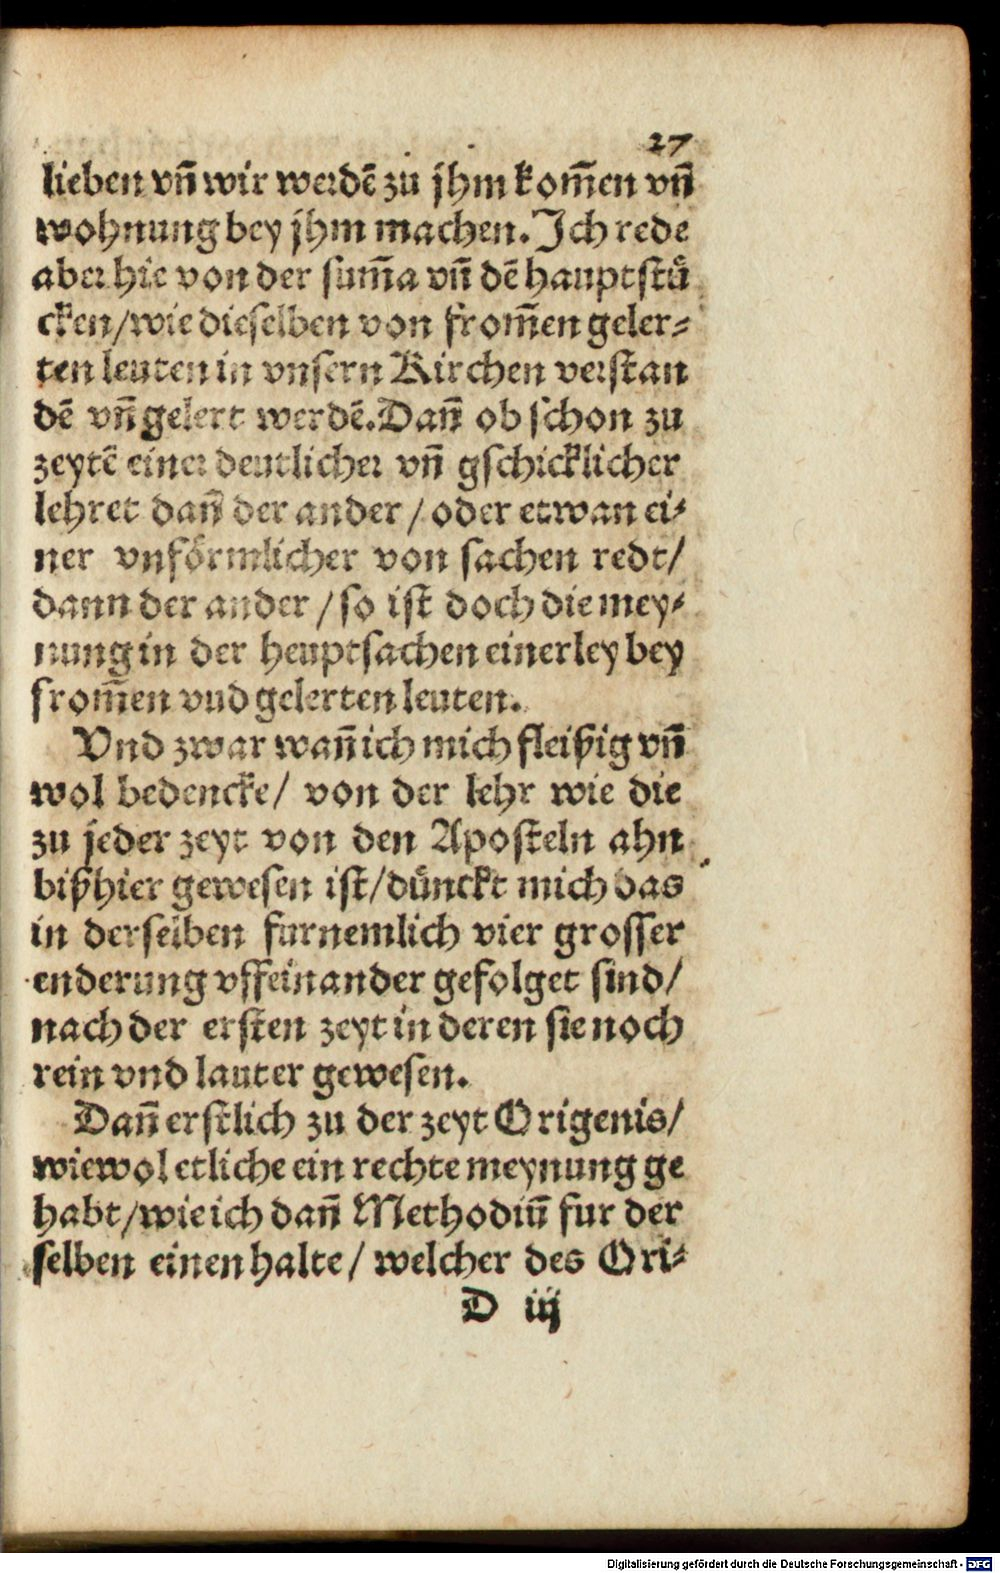 27
lieben vñ wir werdē zu jhm kom̄en vñ
wohnung bey jhm machen. Ich rede
aber hie von der sum̄a vñ dē hauptstuͤ
cken/wie dieselben von from̄en geler⸗
ten leuten in vnsern Kirchen verstan
dē vñ gelert werdē. Dañ ob schon zu
zeytē einer deutlicher vñ gschicklicher
lehret dañ der ander / oder etwan ei⸗
ner vnförmlicher von sachen redt/
dann der ander / so ist doch die mey⸗
nung in der heuptsachen einerley bey
from̄en vnd gelerten leuten.
Vnd zwar wañ ich mich fleißig vñ
wol bedencke/ von der lehr wie die
zu jeder zeyt von den Aposteln ahn
bißhier gewesen ist/duͤnckt mich das
in derselben furnemlich vier grosser
enderung vffeinander gefolget sind/
nach der ersten zeyt in deren sie noch
rein vnd lauter gewesen.
Dañ erstlich zu der zeyt Origenis/
wiewol etliche ein rechte meynung ge
habt/wie ich dañ Methodiū fur der
selben einen halte/ welcher des Ori⸗
D iij
Digitalisierung gefördert durch die Deutsche Forschungsgemeinschaft - DFG